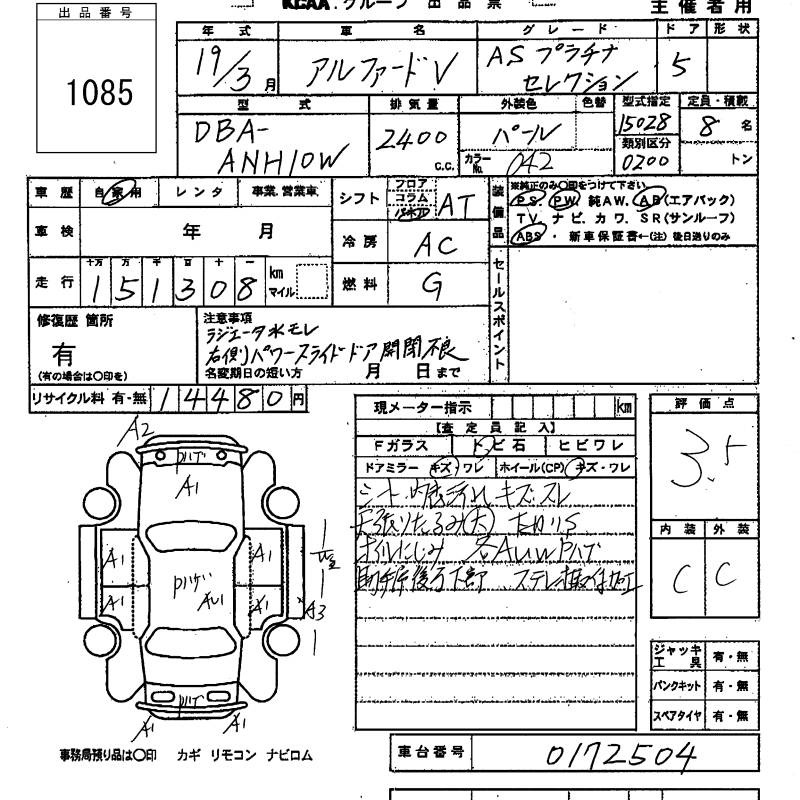 KCAA.グループ 出品票
主催者用
出品番号
1085
年式 車名 グレード ドア 形状
19/3月 アルファードV ASプラチナセレクション 5
型式 排気量 外装色 色替 型式指定 定員・積載
DBA-ANH10W 2400 c.c. パール 15028 8 名
カラーNo. 042 類別区分 0200 トン
車歴 自家用 レンタ 事業.営業車
シフト フロア コラム AT
装備品 ※純正のみ〇印をつけて下さい
PS. PW. 純AW. AB(エアバック)
TV. ナビ. カワ. SR(サンルーフ)
ABS ・ 新車保証書←(注)後日送りのみ
車検 年 月
冷房 AC
走行 十万 万 千 百 十 一
151308 km マイル
燃料 G
セールスポイント
修復歴 箇所
有
(有の場合は〇印を)
注意事項
ラジエータ水モレ
右側パワースライドドア開閉不良
名変期日の短い方 月 日まで
リサイクル料 有・無 14480円
現メーター指示 km
【査定員記入】
Fガラス トビ石 ヒビワレ
ドアミラー キズ・ワレ ホイール(CP) キズ・ワレ
シート・内装汚れ キズ・スレ
天張りたるみ(大)
オイルにじみ 右AUWPハゲ
助手席後方下部 ステレオ
評価点
3.5
内装 外装
C C
A2
Pハゲ
A1
A1 A1
Pハゲ
AU1
A1 A1
A3
Pハゲ
A1 A1
ジャッキ工具 有・無
パンクキット 有・無
スペアタイヤ 有・無
事務局預り品は〇印 カギ リモコン ナビロム
車台番号 0172504